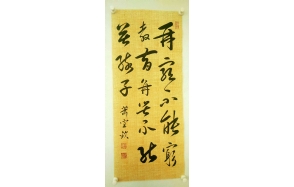 再穷不能窮
教育再苦不能
苦孩子